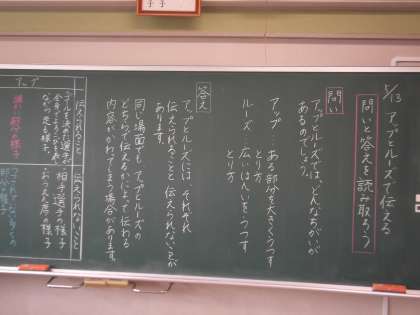 5/13 アップとルーズで伝える
問いと答えを読み取ろう
問い
アップとルーズでは、どんなちがいが
あるのでしょう。
アップ ある部分を大きくうつす
とり方
ルーズ 広いはんいをうつす
とり方
答え
アップとルーズには、それぞれ
伝えられることと伝えられないことが
あります。
同じ場面でも、アップとルーズの
どちらで伝えるかによって伝わる
内容がかわってしまう場合があります。
アップ
伝えられること
ゴールを決めた選手が
走る様子
細かい部分の様子
伝えられないこと
相手選手の様子
おうえん席の様子